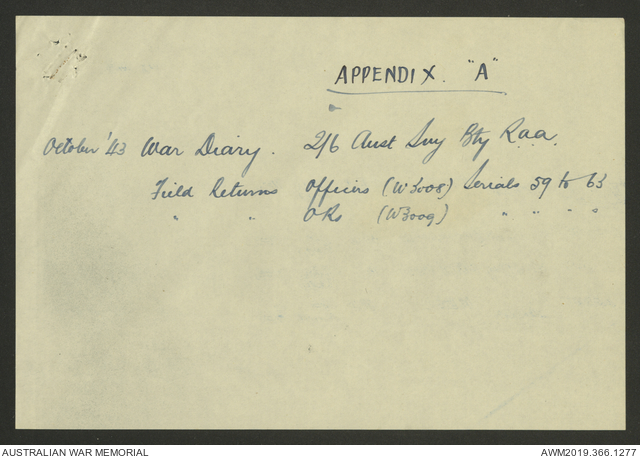 APPENDIX. "A"
October '43 War Diary. 2/6 Aust Svy Bty R.a.a.
Field Returns Officers (W3008) Serials 59 to 63
" " ORs (W3009) " " " "
AUSTRALIAN WAR MEMORIAL AWM2019.366.1277